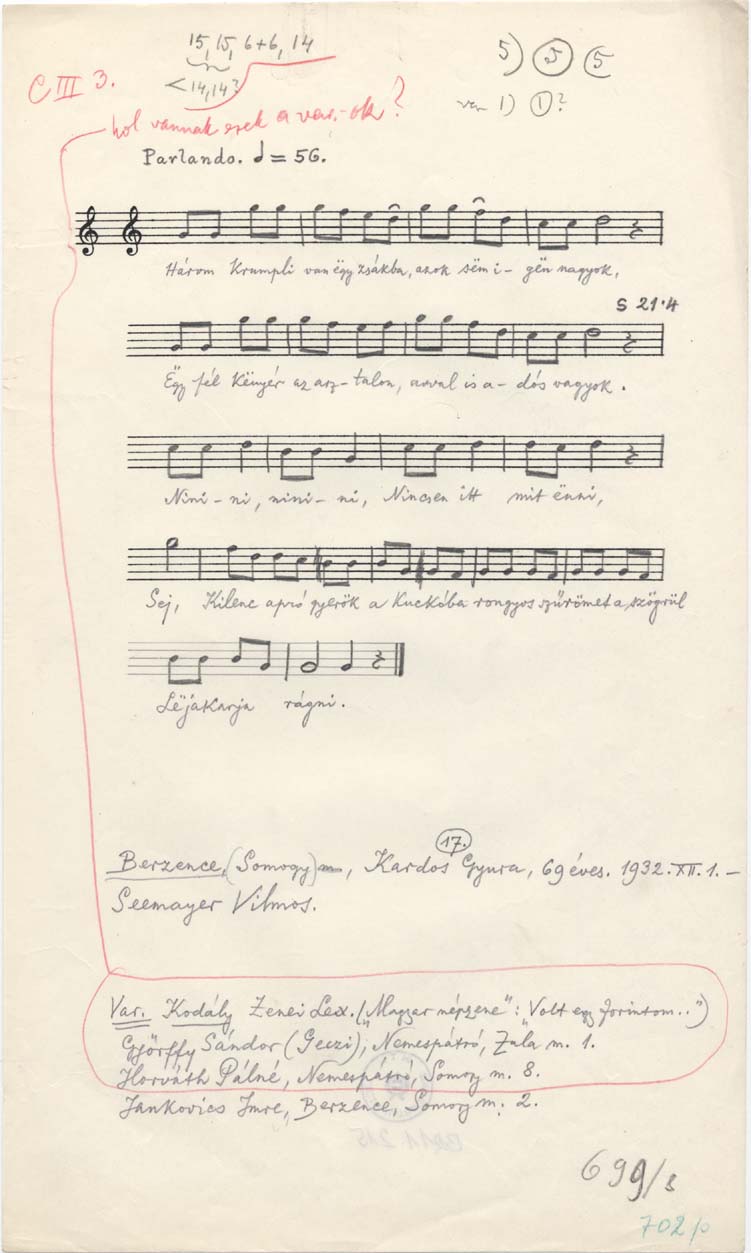 15, 15, 6+6, 14
<14,14?
5) 5 5
C III 3.
var 1) 1?
hol vannak ezek a var.-ok?
Parlando. = 56.
Három Krumpli van ëgy zsákba, azok sëm i-gën nagyok,
S 21.4
Ëgy fél Kënyér az asz-talon, avval is a-dós vagyok.
Nini-ni, nini-ni, Nincsen itt mit ënni,
Sej, Kilenc apró gyerök a Kuckóba rongyos szűrömet a szögrül
Lëjakarja rágni.
17.
Berzence, (Somogy) m, Kardos Gyura, 69 éves. 1932. XII. 1. –
Seemayer Vilmos.
Var. Kodály Zenei Lex. („Magyar népzene": „Volt egy forintom..")
Györffy Sándor (Geczi), Nemespátró, Zala m. 1.
Horváth Pálné, Nemespátró, Somogy m. 8.
Jankovics Imre, Berzence, Somogy m. 2.
699/3